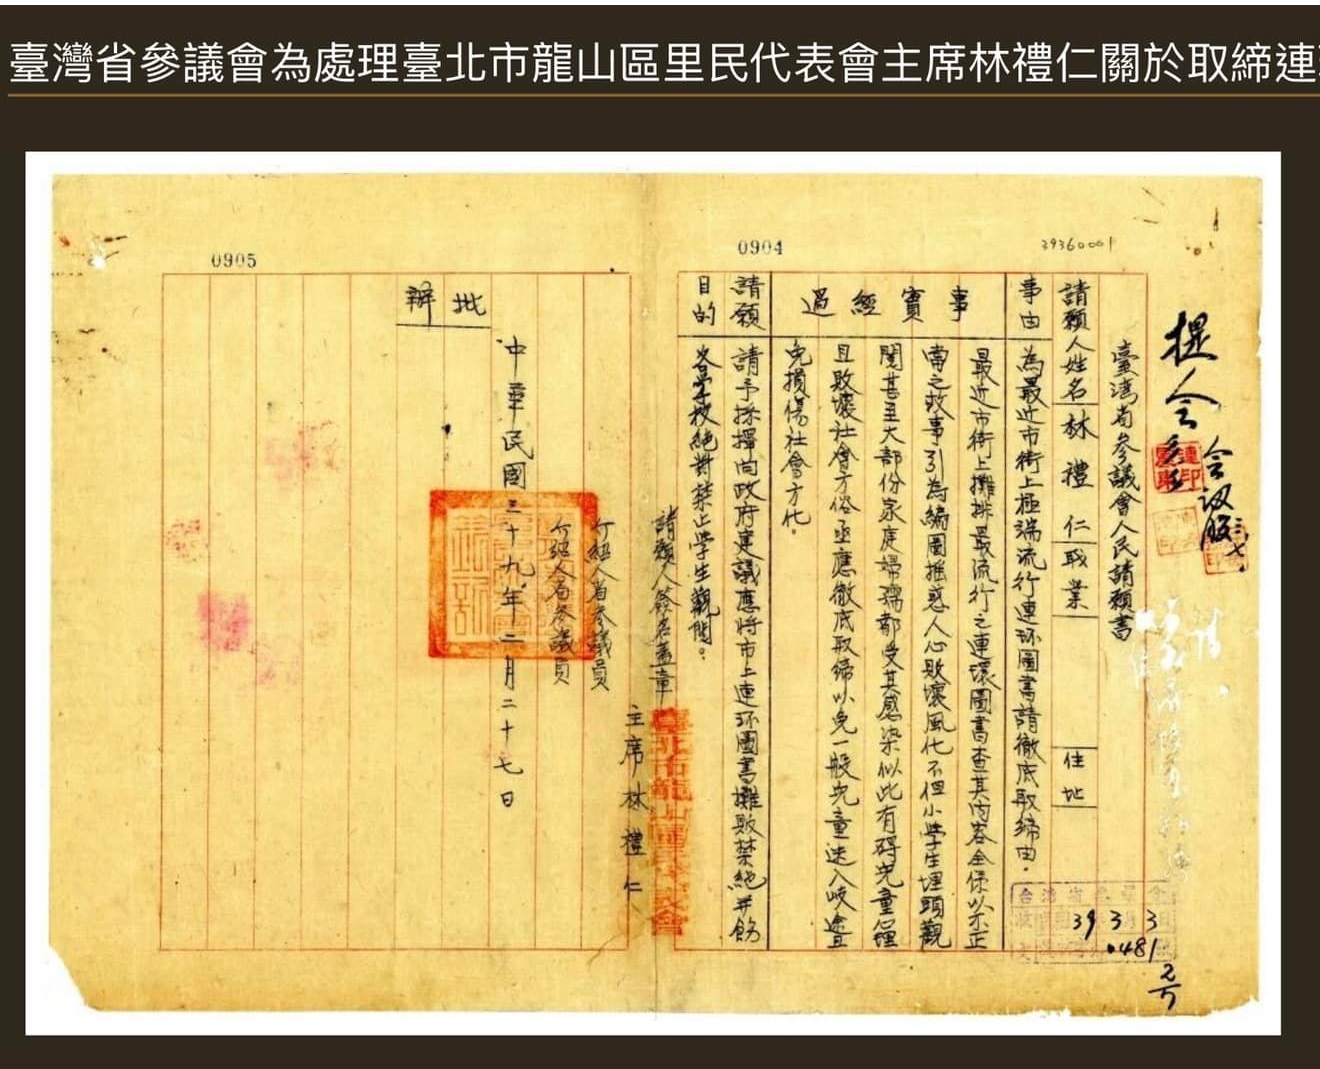 臺灣省參議會為處理臺北市龍山區里民代表會主席林禮仁關於取締連
39360001
0904
0905
提會
臺灣省參議會人民請願書
請願人姓名 林禮仁 職業 住址
事由 為最近市街上極端流行連环圖書請徹底取締由.
事實經過
最近市街上攤排最流行之連環圖書查其內容全係以不正
當之故事引為編圖搖惑人心敗壞風化不但小學生埋頭觀
閱甚至大部份家庭婦孺都受其感染似此有碍兒童
且敗壞社會方俗亟應徹底取締以免一般兒童迷入岐途且
免損傷社會方化.
請願目的
請予採擇向政府建議應將市上連环圖書攤販禁絕并飭
各學校絕對禁止學生觀閱。
請願人簽名蓋章
臺北市龍山區里民代表會
主席林禮仁
介紹人省參議員
介紹人省參議員
中華民國三十九年二月二十七日
批辦
39 3 3
481